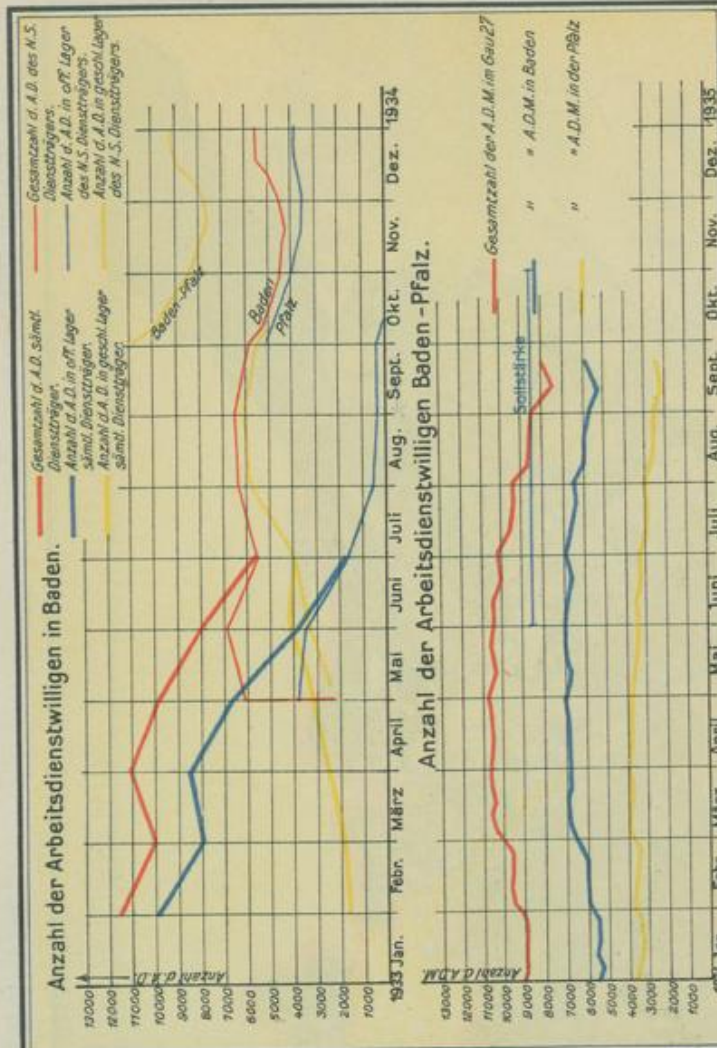 Anzahl der Arbeitsdienstwilligen in Baden.
Gesamtzahl d. A.D. sämtl.
Dienstträger.
Anzahl d. A.D. in off. Lager
sämtl. Dienstträger.
Anzahl d. A.D. in geschl. Lager
sämtl. Dienstträger.
Gesamtzahl d. A.D. des N.S.
Dienstträgers.
Anzahl d. A.D. in off. Lager
des N.S. Dienstträgers.
Anzahl d. A.D. in geschl. Lager
des N.S. Dienstträgers.
Anzahl d. A.D.
13000
12000
11000
10000
9000
8000
7000
6000
5000
4000
3000
2000
1000
Baden-Pfalz
Baden
Pfalz
1933 Jan. Febr. März April Mai Juni Juli Aug. Sept. Okt. Nov. Dez. 1934
Anzahl der Arbeitsdienstwilligen Baden-Pfalz.
Gesamtzahl der A.D.M. im Gau 27
" " A.D.M. in Baden
" " A.D.M. in der Pfalz
Sollstärke
Anzahl d. A.D.M.
13000
12000
11000
10000
9000
8000
7000
6000
5000
4000
3000
2000
1000
Febr. März April Mai Juni Juli Aug. Sept. Okt. Nov. Dez. 1935